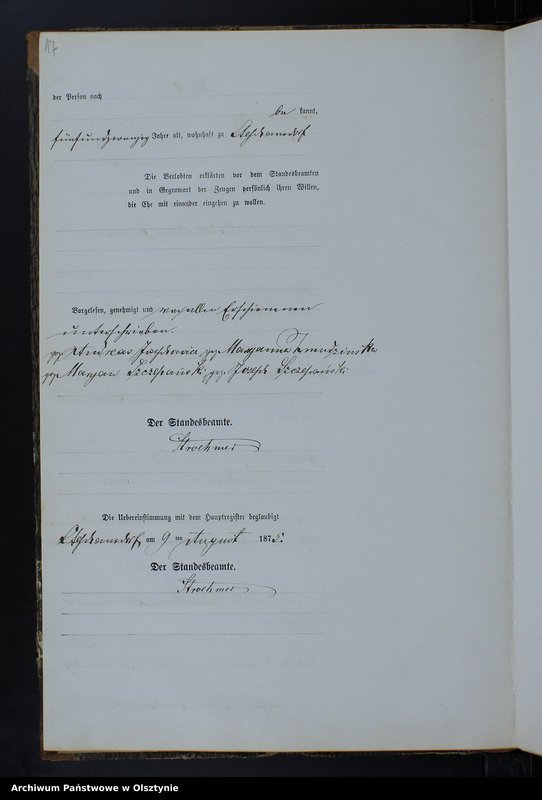 17
der Person nach
be kannt,
fünfundzwanzig Jahre alt, wohnhaft zu
Die Verlobten erklärten vor dem Standesbeamten
und in Gegenwart der Zeugen persönlich ihren Willen,
die Ehe mit einander eingehen zu wollen.
Vorgelesen, genehmigt und von allen Erschienenen
unterschrieben.
gez Andreas gez Maryanne
gez Maryan Szczepanski, gez. Joseph Szczepański
Der Standesbeamte.
Stroehmer
Die Uebereinstimmung mit dem Hauptregister beglaubigt
am 9 ten August 1875.
Der Standesbeamte.
Stroehmer
Archiwum Państwowe w Olsztynie